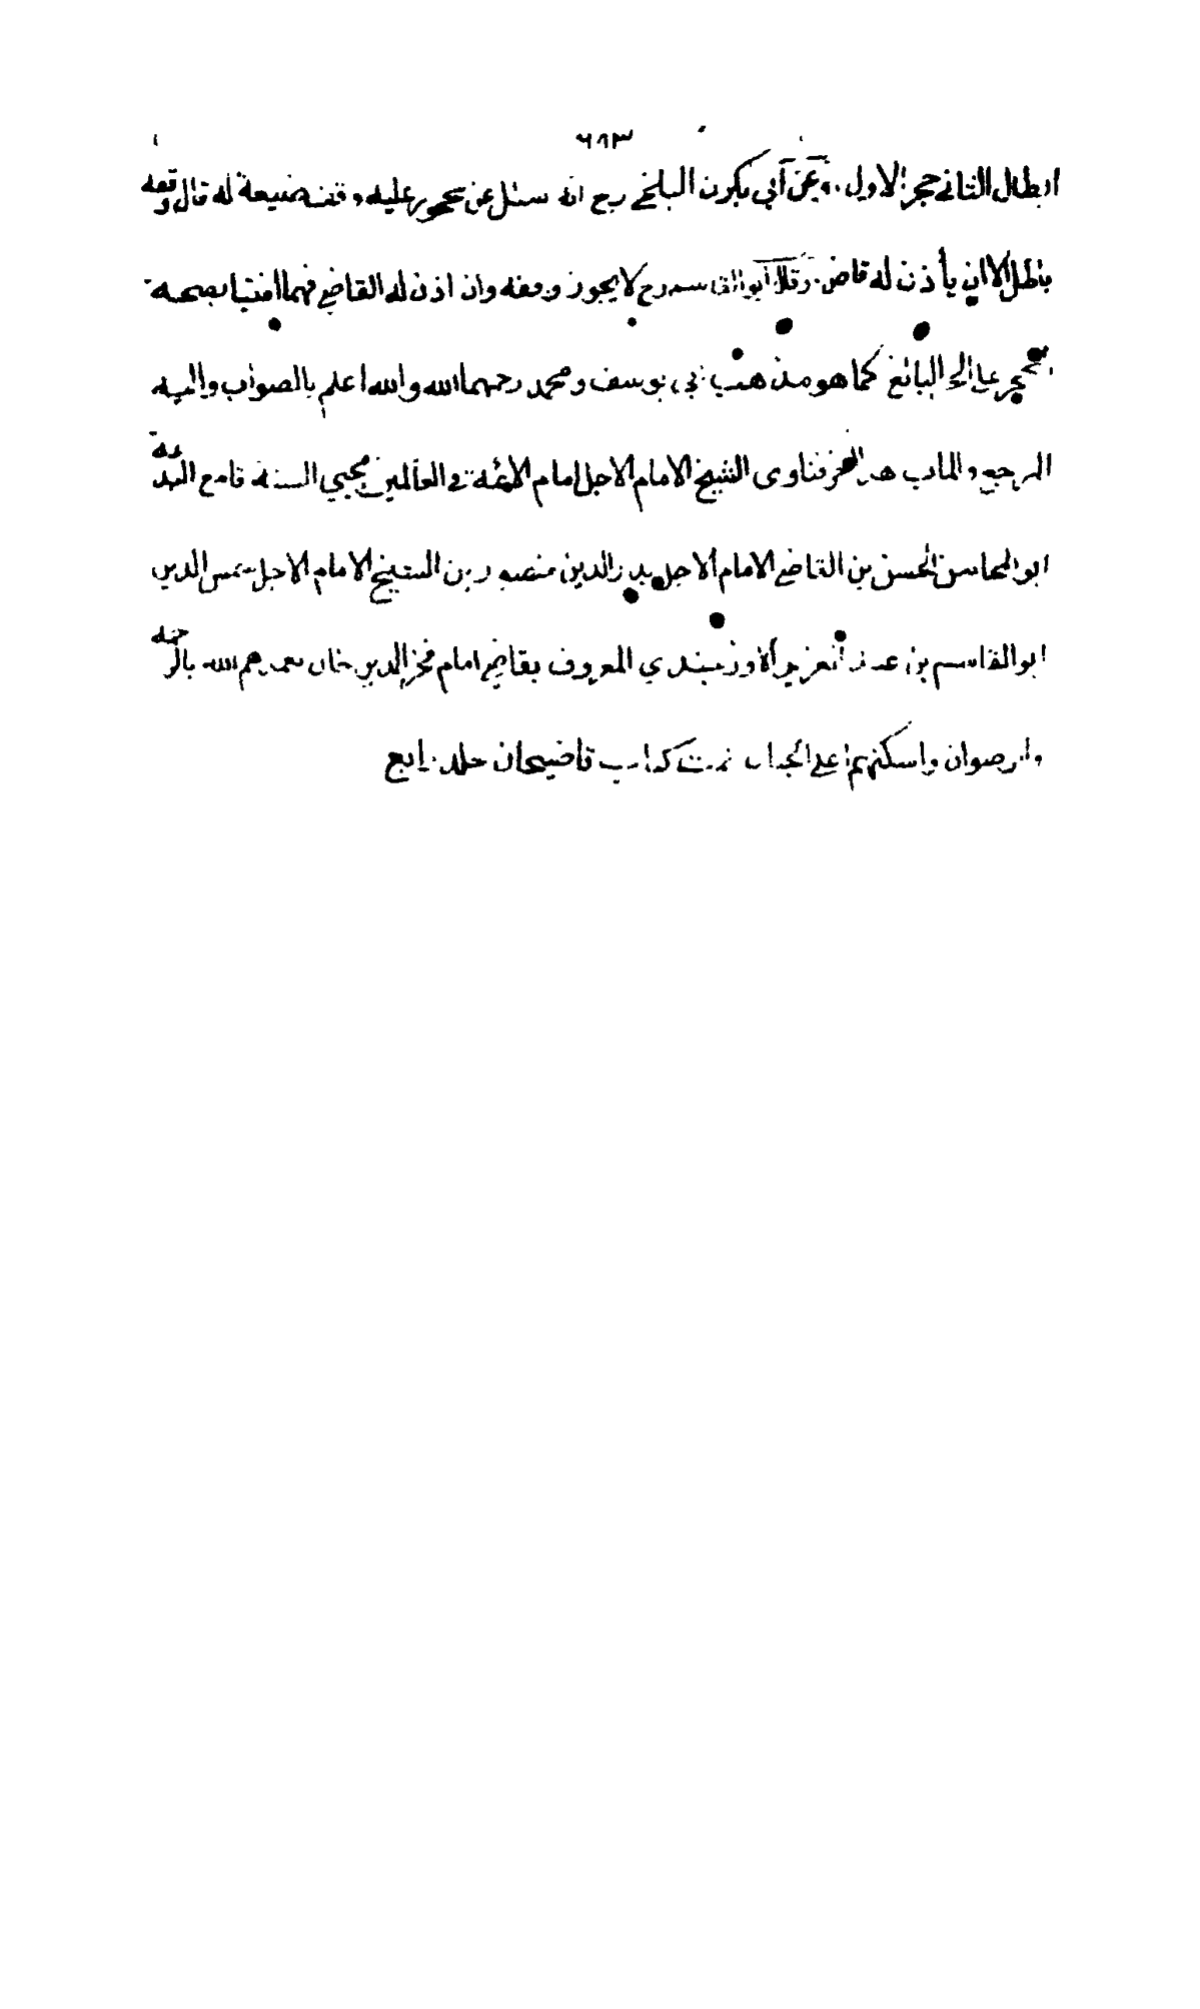 ٦٨٣
ابطال الثانى حجر الاول . وعن أبي بكر ن البلخي رح انه سئل عن محجور عليه وقف ضيعة له قال وقفه
باطل الا ان يأذن له قاض . وقال أبو القاسم رح لا يجوز وقفه وان اذن له القاضي فهما افتيا بصحة
الحجر على الحر البالغ كما هو مذهب ابي يوسف ومحمد رحمهما الله والله اعلم بالصواب واليه
المرجع والمآب هذا آخر فتاوى الشيخ الامام الاجل امام الائمة في العالمين محيي السنة قامع البدعة
ابو المحاسن الحسن بن القاضي الامام الاجل بدر الدين منصور بن الشيخ الامام الاجل شمس الدين
ابو القاسم بن عبد العزيز الاوزجندي المعروف بقاضي امام فخر الدين خان تغمدهم الله بالرحمة
والرضوان واسكنهم اعلى الجنان تمت كتاب قاضيخان جلد رابع